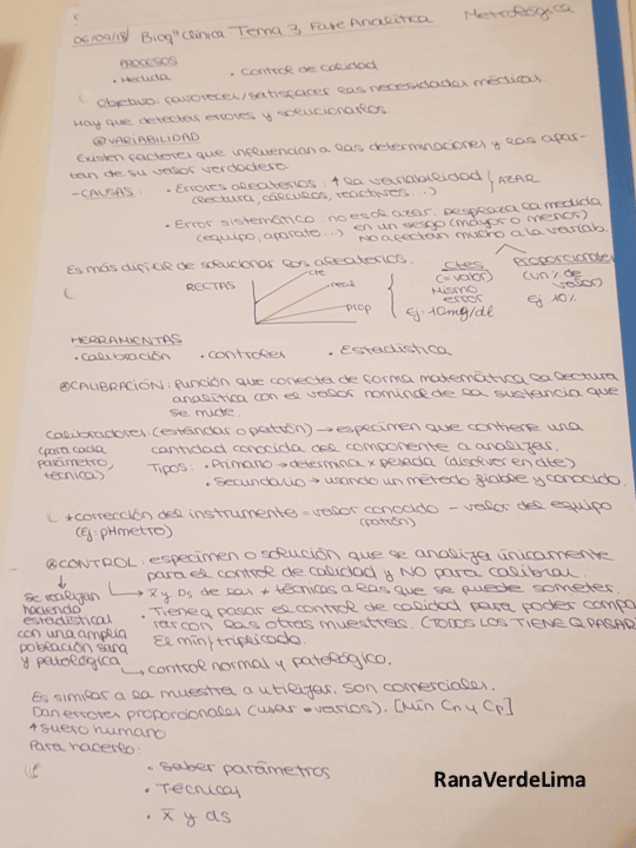 06/09/18 Bioqª Clínica Tema 3 Fase Analítica Metrológica
PROCESOS
· Medida · Control de calidad
Objetivo: favorecer/satisfacer las necesidades médicas.
Hay que detectar errores y solucionarlos.
⊗VARIABILIDAD
Existen factores que influencian a las determinaciones y las apar-
tan de su valor verdadero.
- CAUSAS: · Errores aleatorios: ↑ la variabilidad / AZAR
(lectura, cálculos, reactivos...)
· Error sistemático: no es de azar. Desplaza la medida
(equipo, aparato...) en un sesgo (mayor o menor)
No afectan mucho a la variab.
Es más difícil de solucionar los aleatorios.
RECTAS cte real prop
ctes (= valor) Mismo error Ej: 10mg/dl
proporcionales (un % de valor) Ej 10%
HERRAMIENTAS
· Calibración · Controles · Estadística
⊗CALIBRACIÓN: función que conecta de forma matemática la lectura
analítica con el valor nominal de la sustancia que
se mide.
Calibradores: (estándar o patrón) → espécimen que contiene una
(para cada parámetro, técnica) cantidad conocida del componente a analizar.
Tipos: · Primario → determina x pesada (disolver en dte)
· Secundario → usando un método fiable y conocido.
*corrección del instrumento = valor conocido - valor del equipo
(Ej: pHmetro) (patrón)
⊗CONTROL: espécimen o solución que se analiza únicamente
para el control de calidad y NO para calibrar.
↓ → x̄ y Ds de las ≠ técnicas a las que se puede someter.
se realizan haciendo estadística con una amplia población sana y patológica
· Tiene q pasar el control de calidad para poder compa
rar con las otras muestras. (TODOS LOS TIENE Q PASAR)
El mín/triplicado.
→ control normal y patológico.
Es similar a la muestra a utilizar. Son comerciales.
Dan errores proporcionales (usar varios). [Mín Cn y Cp]
* suero humano
Para hacerlo:
· Saber parámetros
· Técnicas
· x̄ y ds
RanaVerdeLima